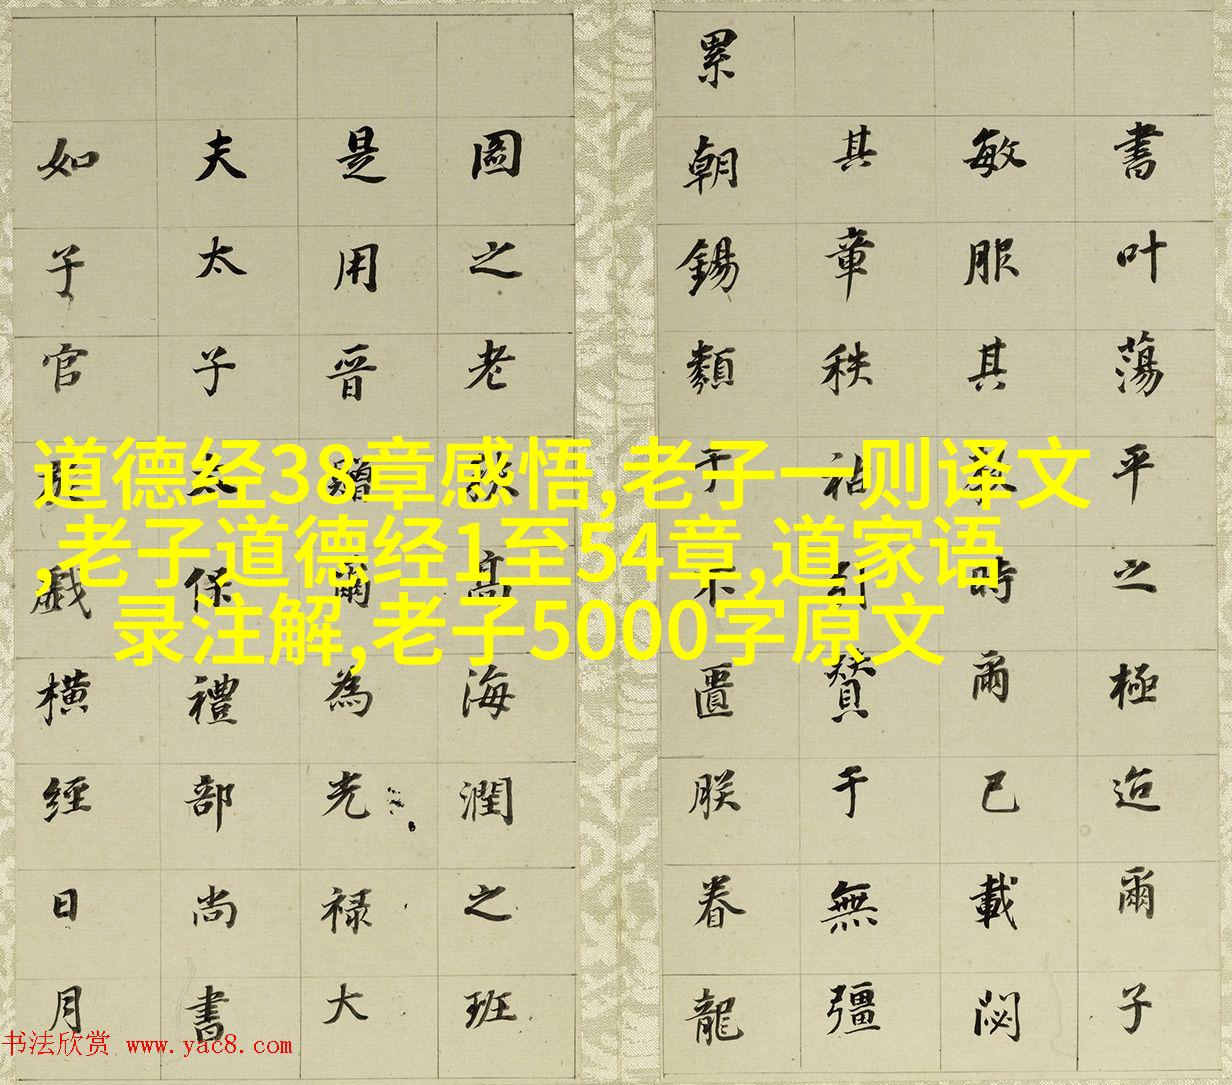 書叶蕩平之極迨爾子
敏服其時爾已載閟
其章秩祜贊于無彊
累朝錫類于不匱朕眷龍
圖之老高海潤之班
是用晉贈爾為光祿大
夫太子太保禮部尚書
如子官戲橫經日月
道德经38章感悟,老子一则译文
,老子道德经1至54章,道家语
录注解,老子5000字原文
书法欣赏 www.yac8.com